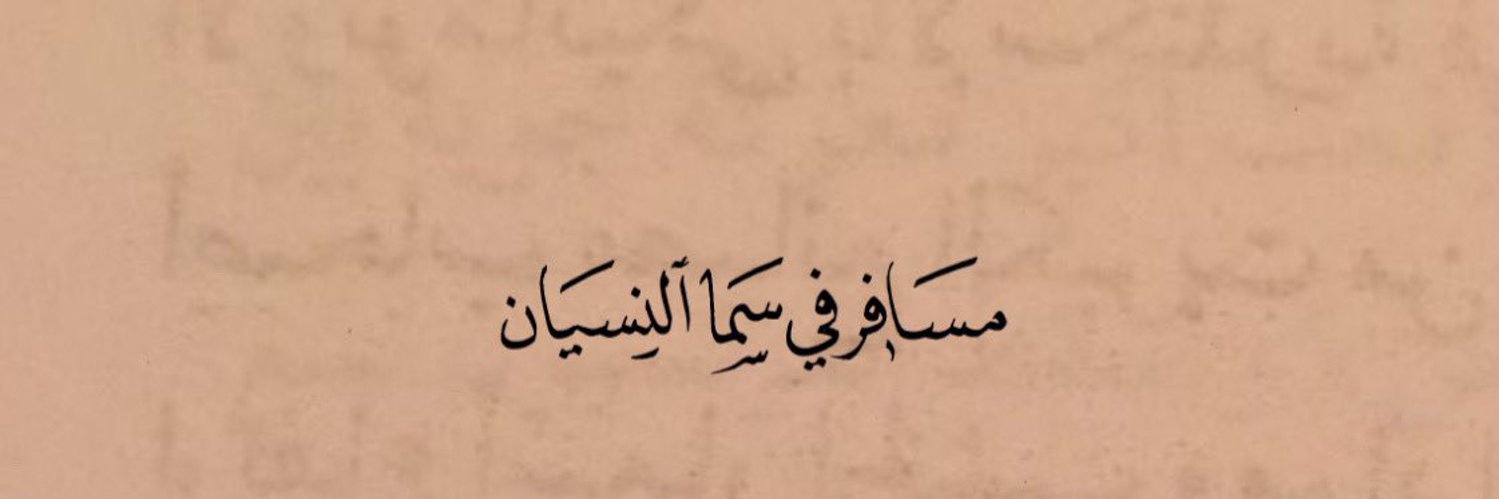 مسَافر في سَِما ٱلنِسيَان